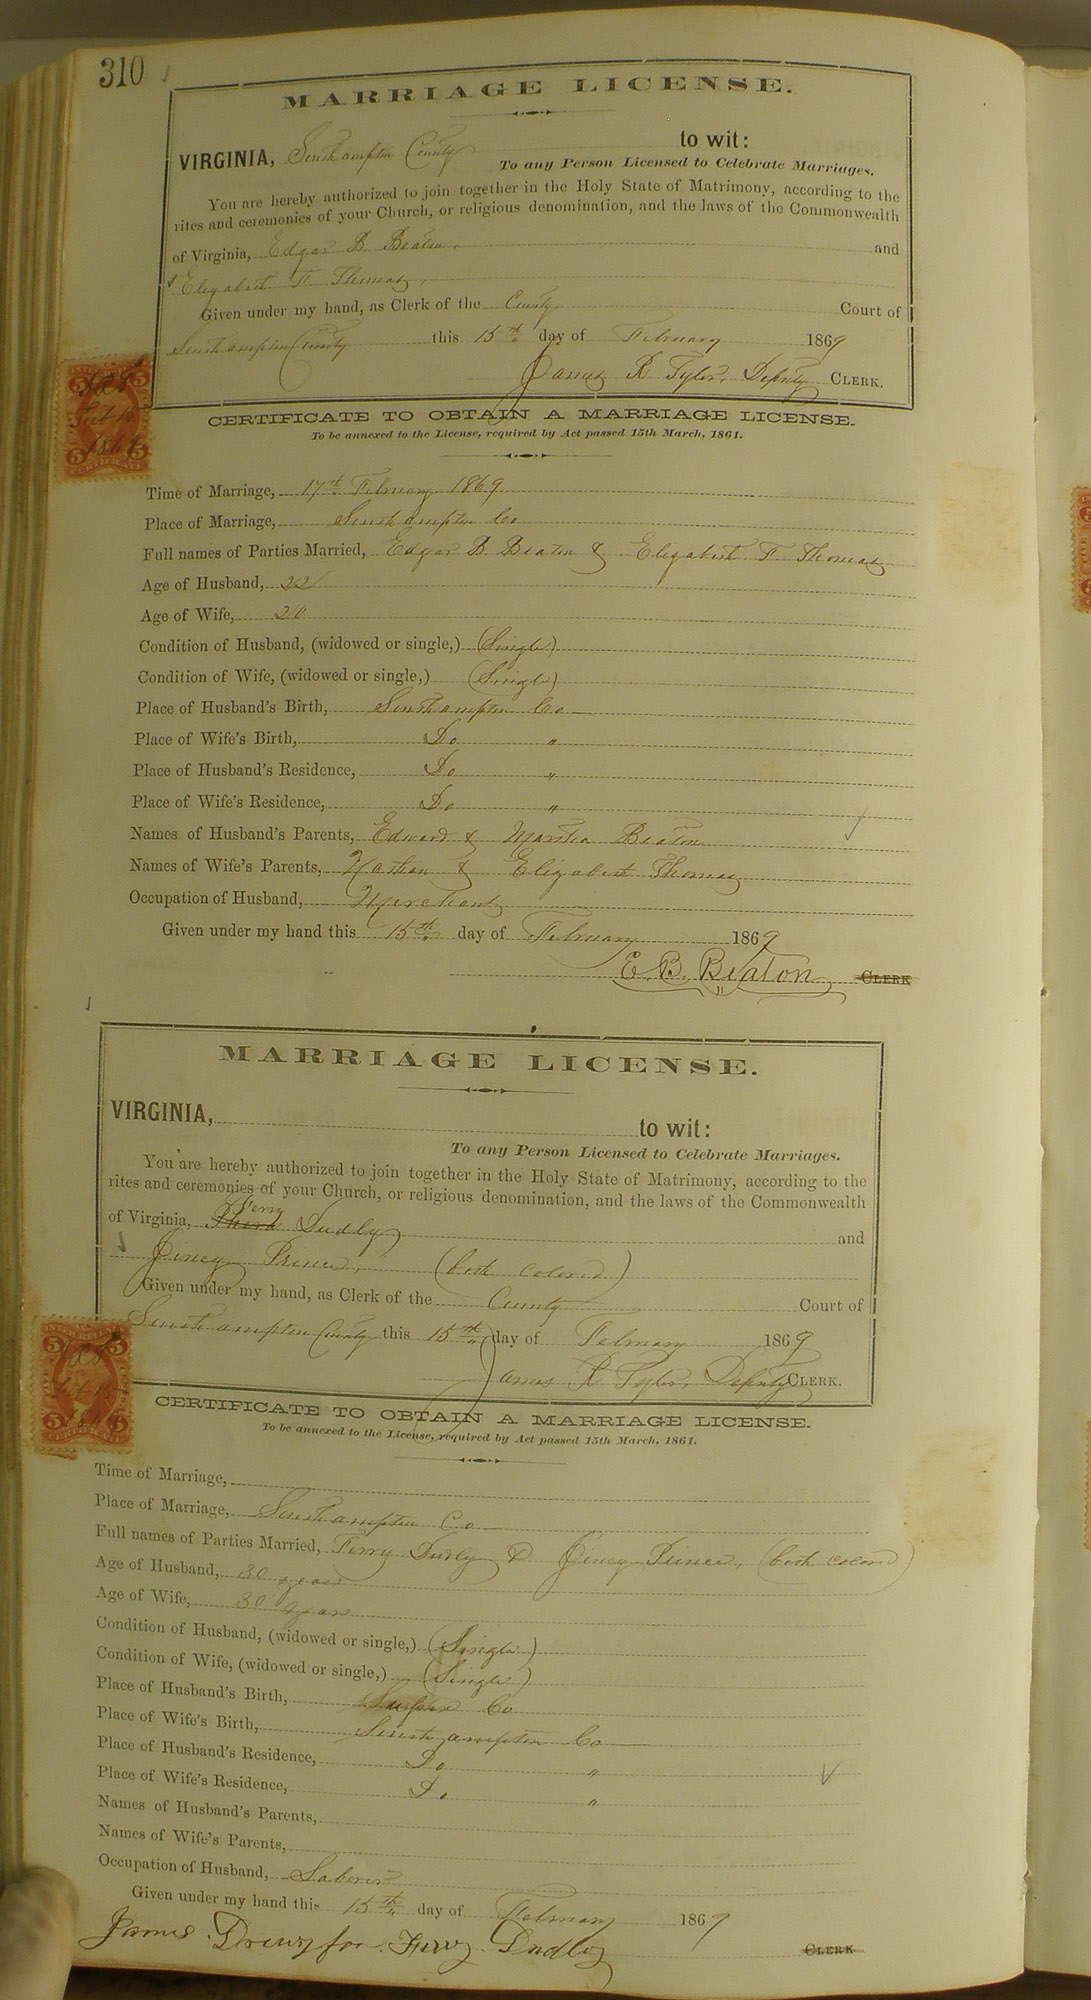 310
MARRIAGE LICENSE.
VIRGINIA, Southampton County to wit:
To any Person Licensed to Celebrate Marriages.
You are hereby authorized to join together in the Holy State of Matrimony, according to the
rites and ceremonies of your Church, or religious denomination, and the laws of the Commonwealth
of Virginia, Edgar B Beaton and
Elizabeth F Thomas,
Given under my hand, as Clerk of the County Court of
Southampton County this 15th day of February 1869
James R Tyler, Deputy CLERK.
5 5
Feb 15
1869
5 5
CERTIFICATE
CERTIFICATE TO OBTAIN A MARRIAGE LICENSE.
To be annexed to the License, required by Act passed 15th March, 1861.
Time of Marriage, 17th February 1869
Place of Marriage, Southampton Co
Full names of Parties Married, Edgar B. Beaton & Elizabeth F Thomas
Age of Husband, 22
Age of Wife, 20
Condition of Husband, (widowed or single,) (Single)
Condition of Wife, (widowed or single,) (Single)
Place of Husband's Birth, Southampton Co
Place of Wife's Birth, Do "
Place of Husband's Residence, Do "
Place of Wife's Residence, Do "
Names of Husband's Parents, Edward & Martha Beaton
Names of Wife's Parents, & Elizabeth Thomas
Occupation of Husband, Merchant
Given under my hand this 15th day of February 1869
E. B. Beaton CLERK
MARRIAGE LICENSE.
VIRGINIA, to wit:
To any Person Licensed to Celebrate Marriages.
You are hereby authorized to join together in the Holy State of Matrimony, according to the
rites and ceremonies of your Church, or religious denomination, and the laws of the Commonwealth
of Virginia, Ferry Dudly and
Jincy Prince, (both colored)
Given under my hand, as Clerk of the County Court of
Southampton County this 15th day of February 1869
James R Tyler, Deputy CLERK.
5 5
Feb 15
5 5
CERTIFICATE
CERTIFICATE TO OBTAIN A MARRIAGE LICENSE.
To be annexed to the License, required by Act passed 15th March, 1861.
Time of Marriage,
Place of Marriage, Southampton Co
Full names of Parties Married, Ferry Dudly & Jincy Prince, (both colored)
Age of Husband, 30 years
Age of Wife, 30 years
Condition of Husband, (widowed or single,) (Single)
Condition of Wife, (widowed or single,) (Single)
Place of Husband's Birth, Co
Place of Wife's Birth, Southampton Co
Place of Husband's Residence, Do "
Place of Wife's Residence, Do "
Names of Husband's Parents,
Names of Wife's Parents,
Occupation of Husband, Laborer
Given under my hand this 15th day of February 1869
James Drewry for Ferry Dudly CLERK